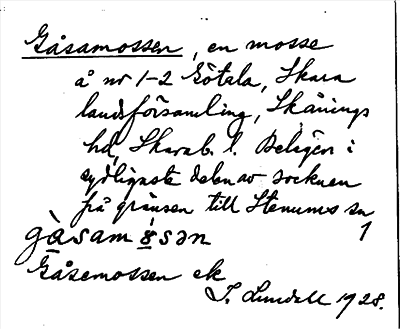 Gåsamossen, en mosse
å nr 1-2 Götala, Skara
landsförsamling, Skånings
hd, Skarab. l. Belägen i
sydligaste delen av socknen
på gränsen till Stenums sn
1
gåsamɔsən
Gåsemossen ek
S. Lundell 1928.